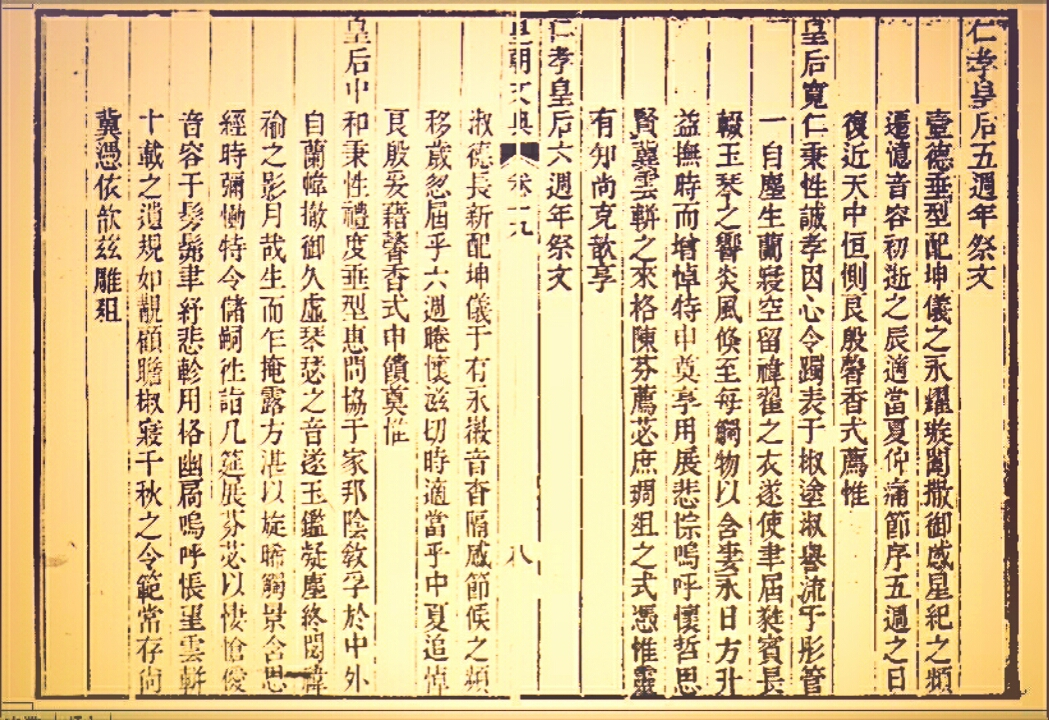 仁孝皇后五週年祭文
壼德垂型配坤儀之永耀璇闈撤御感星紀之頻
遷憶音容初逝之辰適當夏仲痛節序五週之日
復近天中恒惻艮殷馨香式薦惟
皇后寬仁秉性誠孝因心令躅表于椒塗淑譽流于彤管
一自塵生蘭寢空留褘翟之衣遂使聿届蕤賓長
輟玉琴之響炎風倏至每觸物以含悽永日方升
益撫時而增悼特申奠享用展悲悰嗚呼懷哲思
賢冀雲軿之來格陳芬薦苾庶琱俎之式憑惟靈
有知尚克歆享
仁孝皇后六週年祭文
皇朝文典 卷一九 八
淑德長新配坤儀于有永徽音杳隔感節候之頻
移歲忽届乎六週睠懷玆切時適當乎中夏追悼
艮殷爰藉馨香式申饋奠惟
皇后中和秉性禮度垂型惠問協于家邦陰敎孚於中外
自蘭幃撤御久虛琴瑟之音遂玉鑑凝塵終閟褘
褕之影月哉生而乍掩露方湛以旋晞觸景含思
經時彌慟特令儲嗣徃詣几筵展芬苾以悽愴僾
音容于髣髴聿紓悲軫用格幽扃嗚呼悵望雲軿
十載之遺規如覩顧瞻椒寢千秋之令範常存尙
冀憑依歆玆雕俎